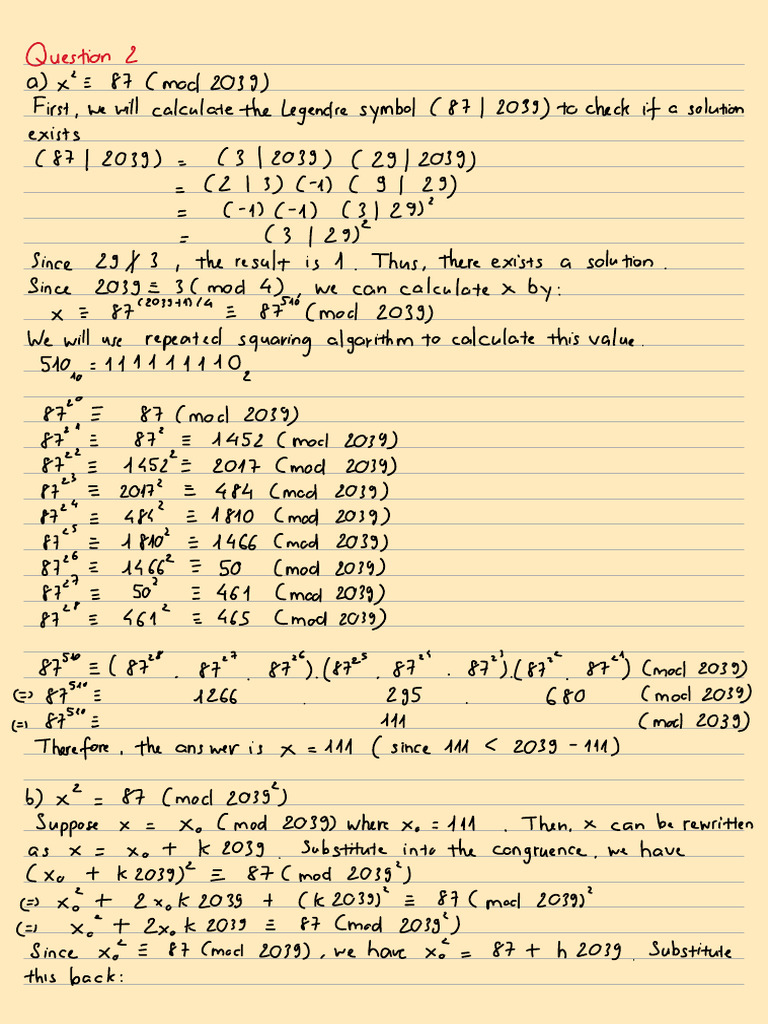 Question 2
a) x² ≡ 87 (mod 2039)
First, we will calculate the Legendre symbol (87 | 2039) to check if a solution
exists
(87 | 2039) = (3 | 2039) (29 | 2039)
= (2 | 3) (-1) (9 | 29)
= (-1) (-1) (3 | 29)²
= (3 | 29)²
Since 29 ∤ 3, the result is 1. Thus, there exists a solution.
Since 2039 ≡ 3 (mod 4), we can calculate x by:
x ≡ 87^((2039+1)/4) ≡ 87^510 (mod 2039)
We will use repeated squaring algorithm to calculate this value.
510₁₀ = 111111110₂
87^2^0 ≡ 87 (mod 2039)
87^2^1 ≡ 87² ≡ 1452 (mod 2039)
87^2^2 ≡ 1452² ≡ 2017 (mod 2039)
87^2^3 ≡ 2017² ≡ 484 (mod 2039)
87^2^4 ≡ 484² ≡ 1810 (mod 2039)
87^2^5 ≡ 1810² ≡ 1466 (mod 2039)
87^2^6 ≡ 1466² ≡ 50 (mod 2039)
87^2^7 ≡ 50² ≡ 461 (mod 2039)
87^2^8 ≡ 461² ≡ 465 (mod 2039)
87^510 ≡ (87^2^8 . 87^2^7 . 87^2^6).(87^2^5 . 87^2^4 . 87^2^3).(87^2^2 . 87^2^1) (mod 2039)
(=) 87^510 ≡ 1266 . 295 . 680 (mod 2039)
(=) 87^510 ≡ 111 (mod 2039)
Therefore, the answer is x = 111 (since 111 < 2039 - 111)
b) x² = 87 (mod 2039²)
Suppose x = x₀ (mod 2039) where x₀ = 111. Then, x can be rewritten
as x = x₀ + k 2039. Substitute into the congruence, we have
(x₀ + k 2039)² ≡ 87 (mod 2039²)
(=) x₀² + 2x₀k 2039 + (k 2039)² ≡ 87 (mod 2039)²
(=) x₀² + 2x₀k 2039 ≡ 87 (mod 2039²)
Since x₀² ≡ 87 (mod 2039), we have x₀² = 87 + h 2039. Substitute
this back: